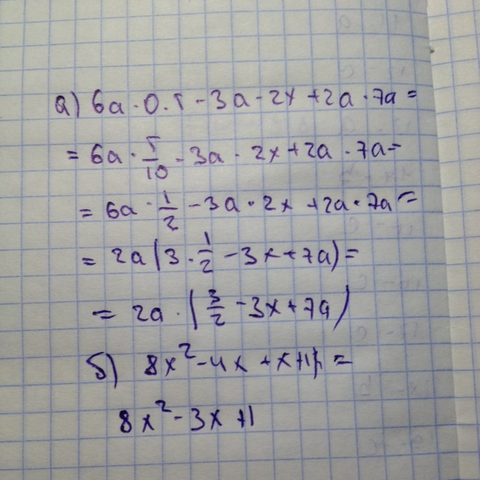 а) 6a · 0.5 - 3a · 2x + 2a · 7a =
= 6a · 5/10 - 3a · 2x + 2a · 7a =
= 6a · 1/2 - 3a · 2x + 2a · 7a =
= 2a (3 · 1/2 - 3x + 7a) =
= 2a · (3/2 - 3x + 7a)
б) 8x² - 4x + x + 1 =
8x² - 3x + 1